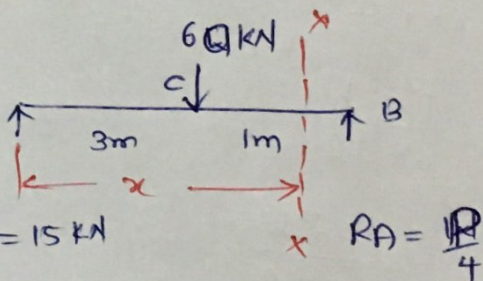 x
60 KN
C
B
3m 1m
x
= 15 KN
x RA =
4